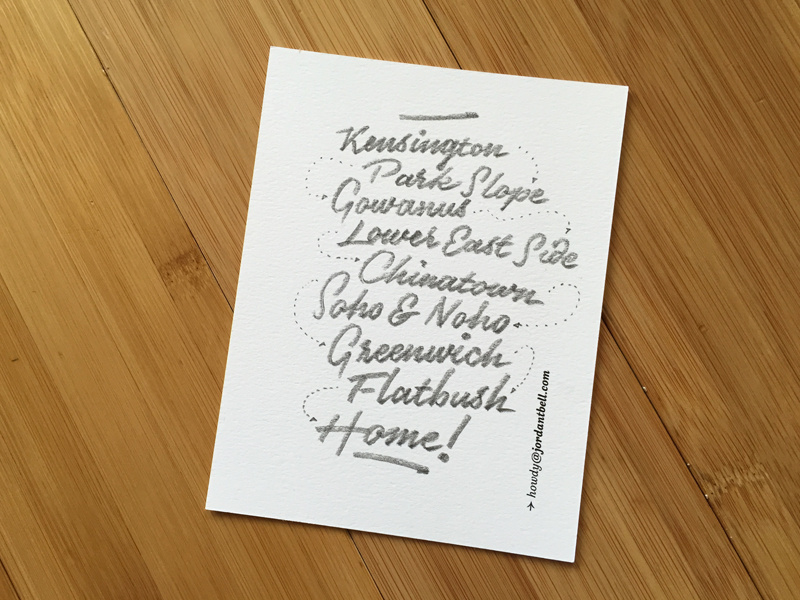 Kensington
Park Slope
Gowanus
Lower East Side
Chinatown
Soho & Noho
Greenwich
Flatbush
Home!
howdy@jordantbell.com